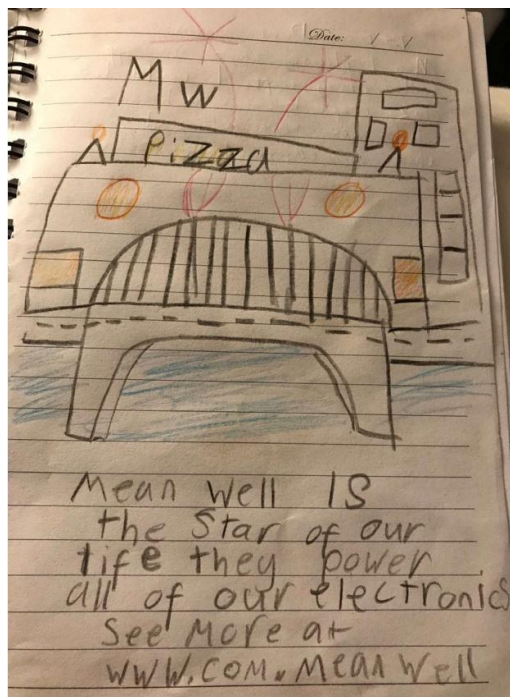 Date:
MW
pizza
Mean Well IS
the Star of our
life they power
all of our electronics
See More at
WWW.COM.Mean Well